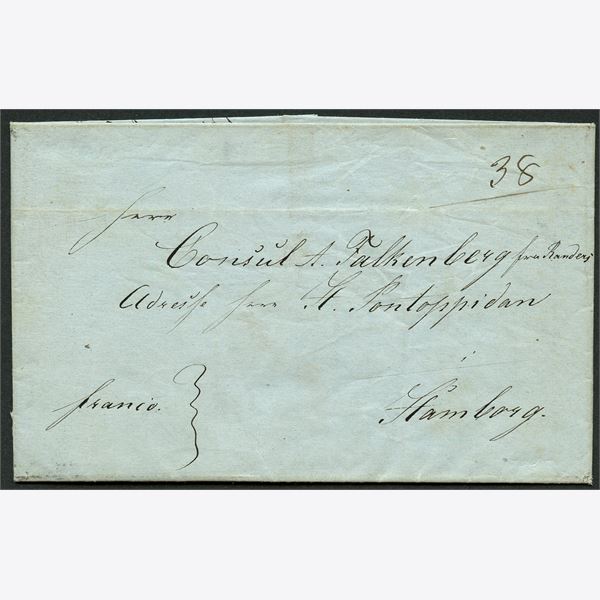 38
Herr
Consul A. Falkenberg fra Randers
Adresse Herr H. Pontoppidan
i
franco.
Hamborg.